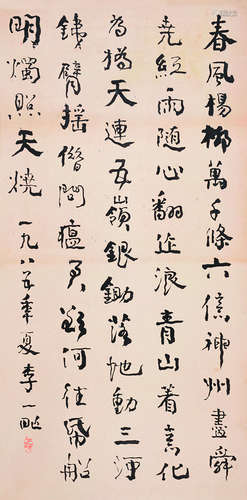 春風楊柳萬千條六億神州盡舜
堯紅雨隨心翻作浪青山着意化
為橋天連五嶺銀鋤落地動三河
鐵臂搖借問瘟君欲何往紙船
明燭照天燒 一九八五年夏李一氓